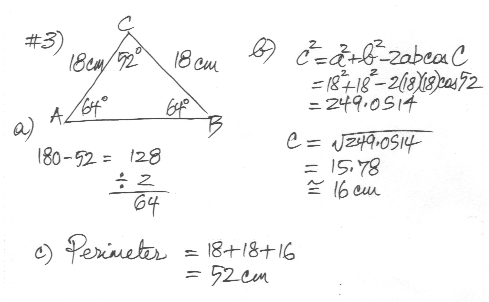 #3)
C
18cm 52° 18 cm
A 64° 64° B
a)
180-52 = 128
÷ 2
64
b) c² = a²+b²-2abcos C
= 18²+18²-2(18)(18)cos52
= 249.0514
c = √249.0514
= 15.78
≅ 16 cm
c) Perimeter = 18+18+16
= 52 cm